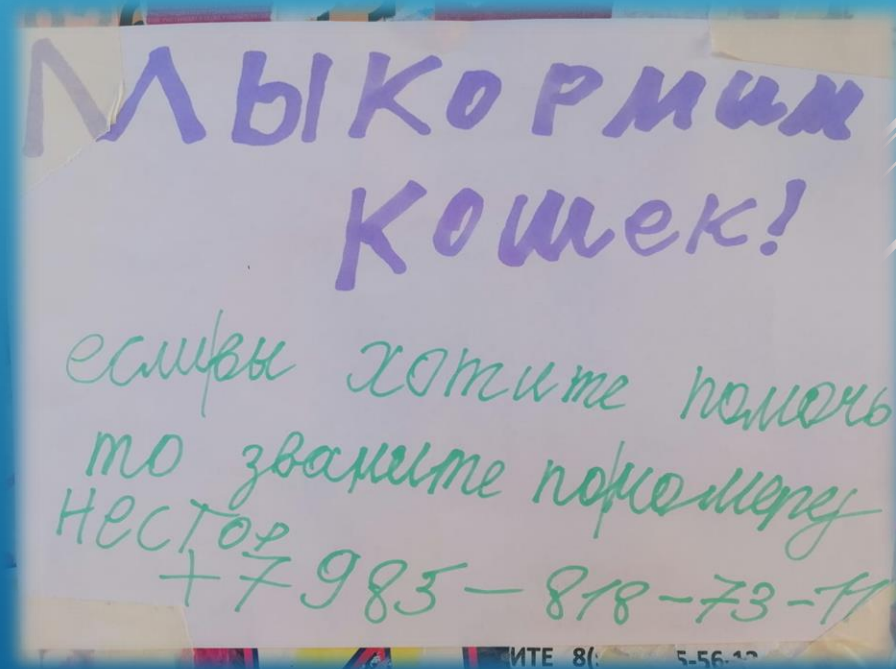 Мы кормим
кошек!
если|вы хотите помочь
то званите по|номеру
Нестор
+7 985-818-73-11
ИТЕ 8(
5-56-12